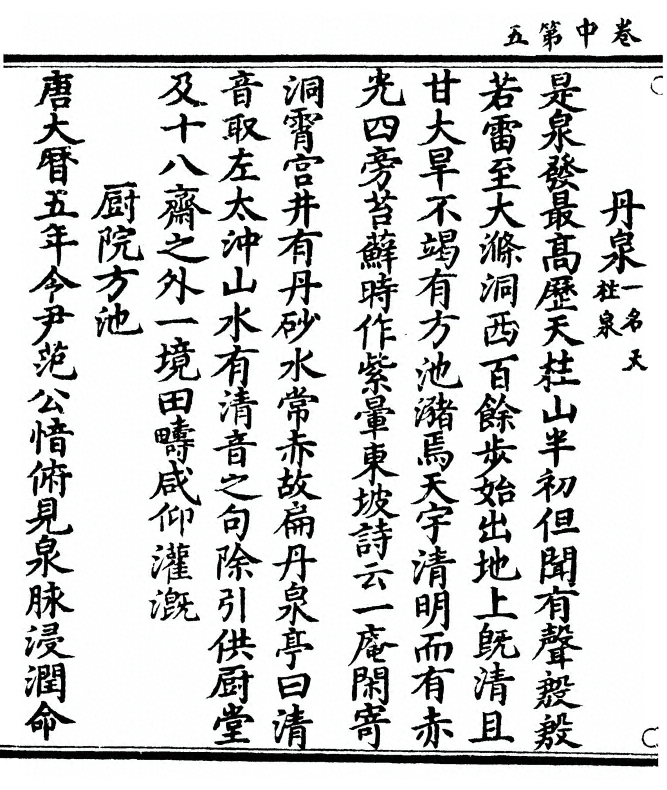 卷中第五
丹泉一名天柱泉
是泉發最高歷天柱山半初但聞有聲㲉㲉
若雷至大滌洞西百餘步始出地上旣清且
甘大旱不竭有方池瀦焉天宇清明而有赤
光四旁苔蘚時作紫暈東坡詩云一庵閑寄
洞霄宮井有丹砂水常赤故扁丹泉亭曰清
音取左太沖山水有清音之句除引供厨堂
及十八齋之外一境田疇咸仰灌溉
厨院方池
唐大曆五年令尹范公愔俯見泉脉浸潤命